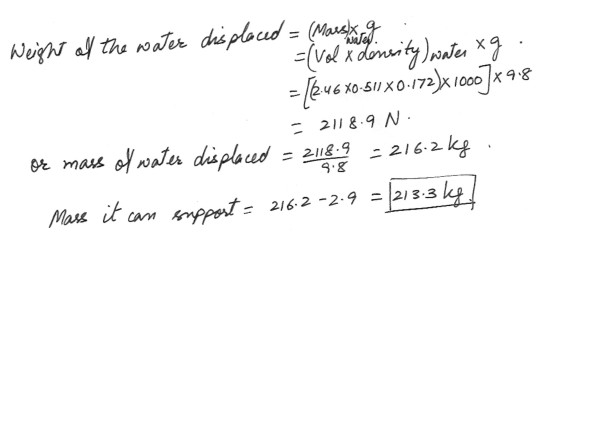 Weight of the water displaced = (Mass)water x g
= (Vol x density) water x g .
= [(2.46 x 0.511 x 0.172) x 1000] x 9.8
= 2118.9 N .
or mass of water displaced = 2118.9/9.8 = 216.2 kg .
Mass it can support = 216.2 - 2.9 = 213.3 kg.